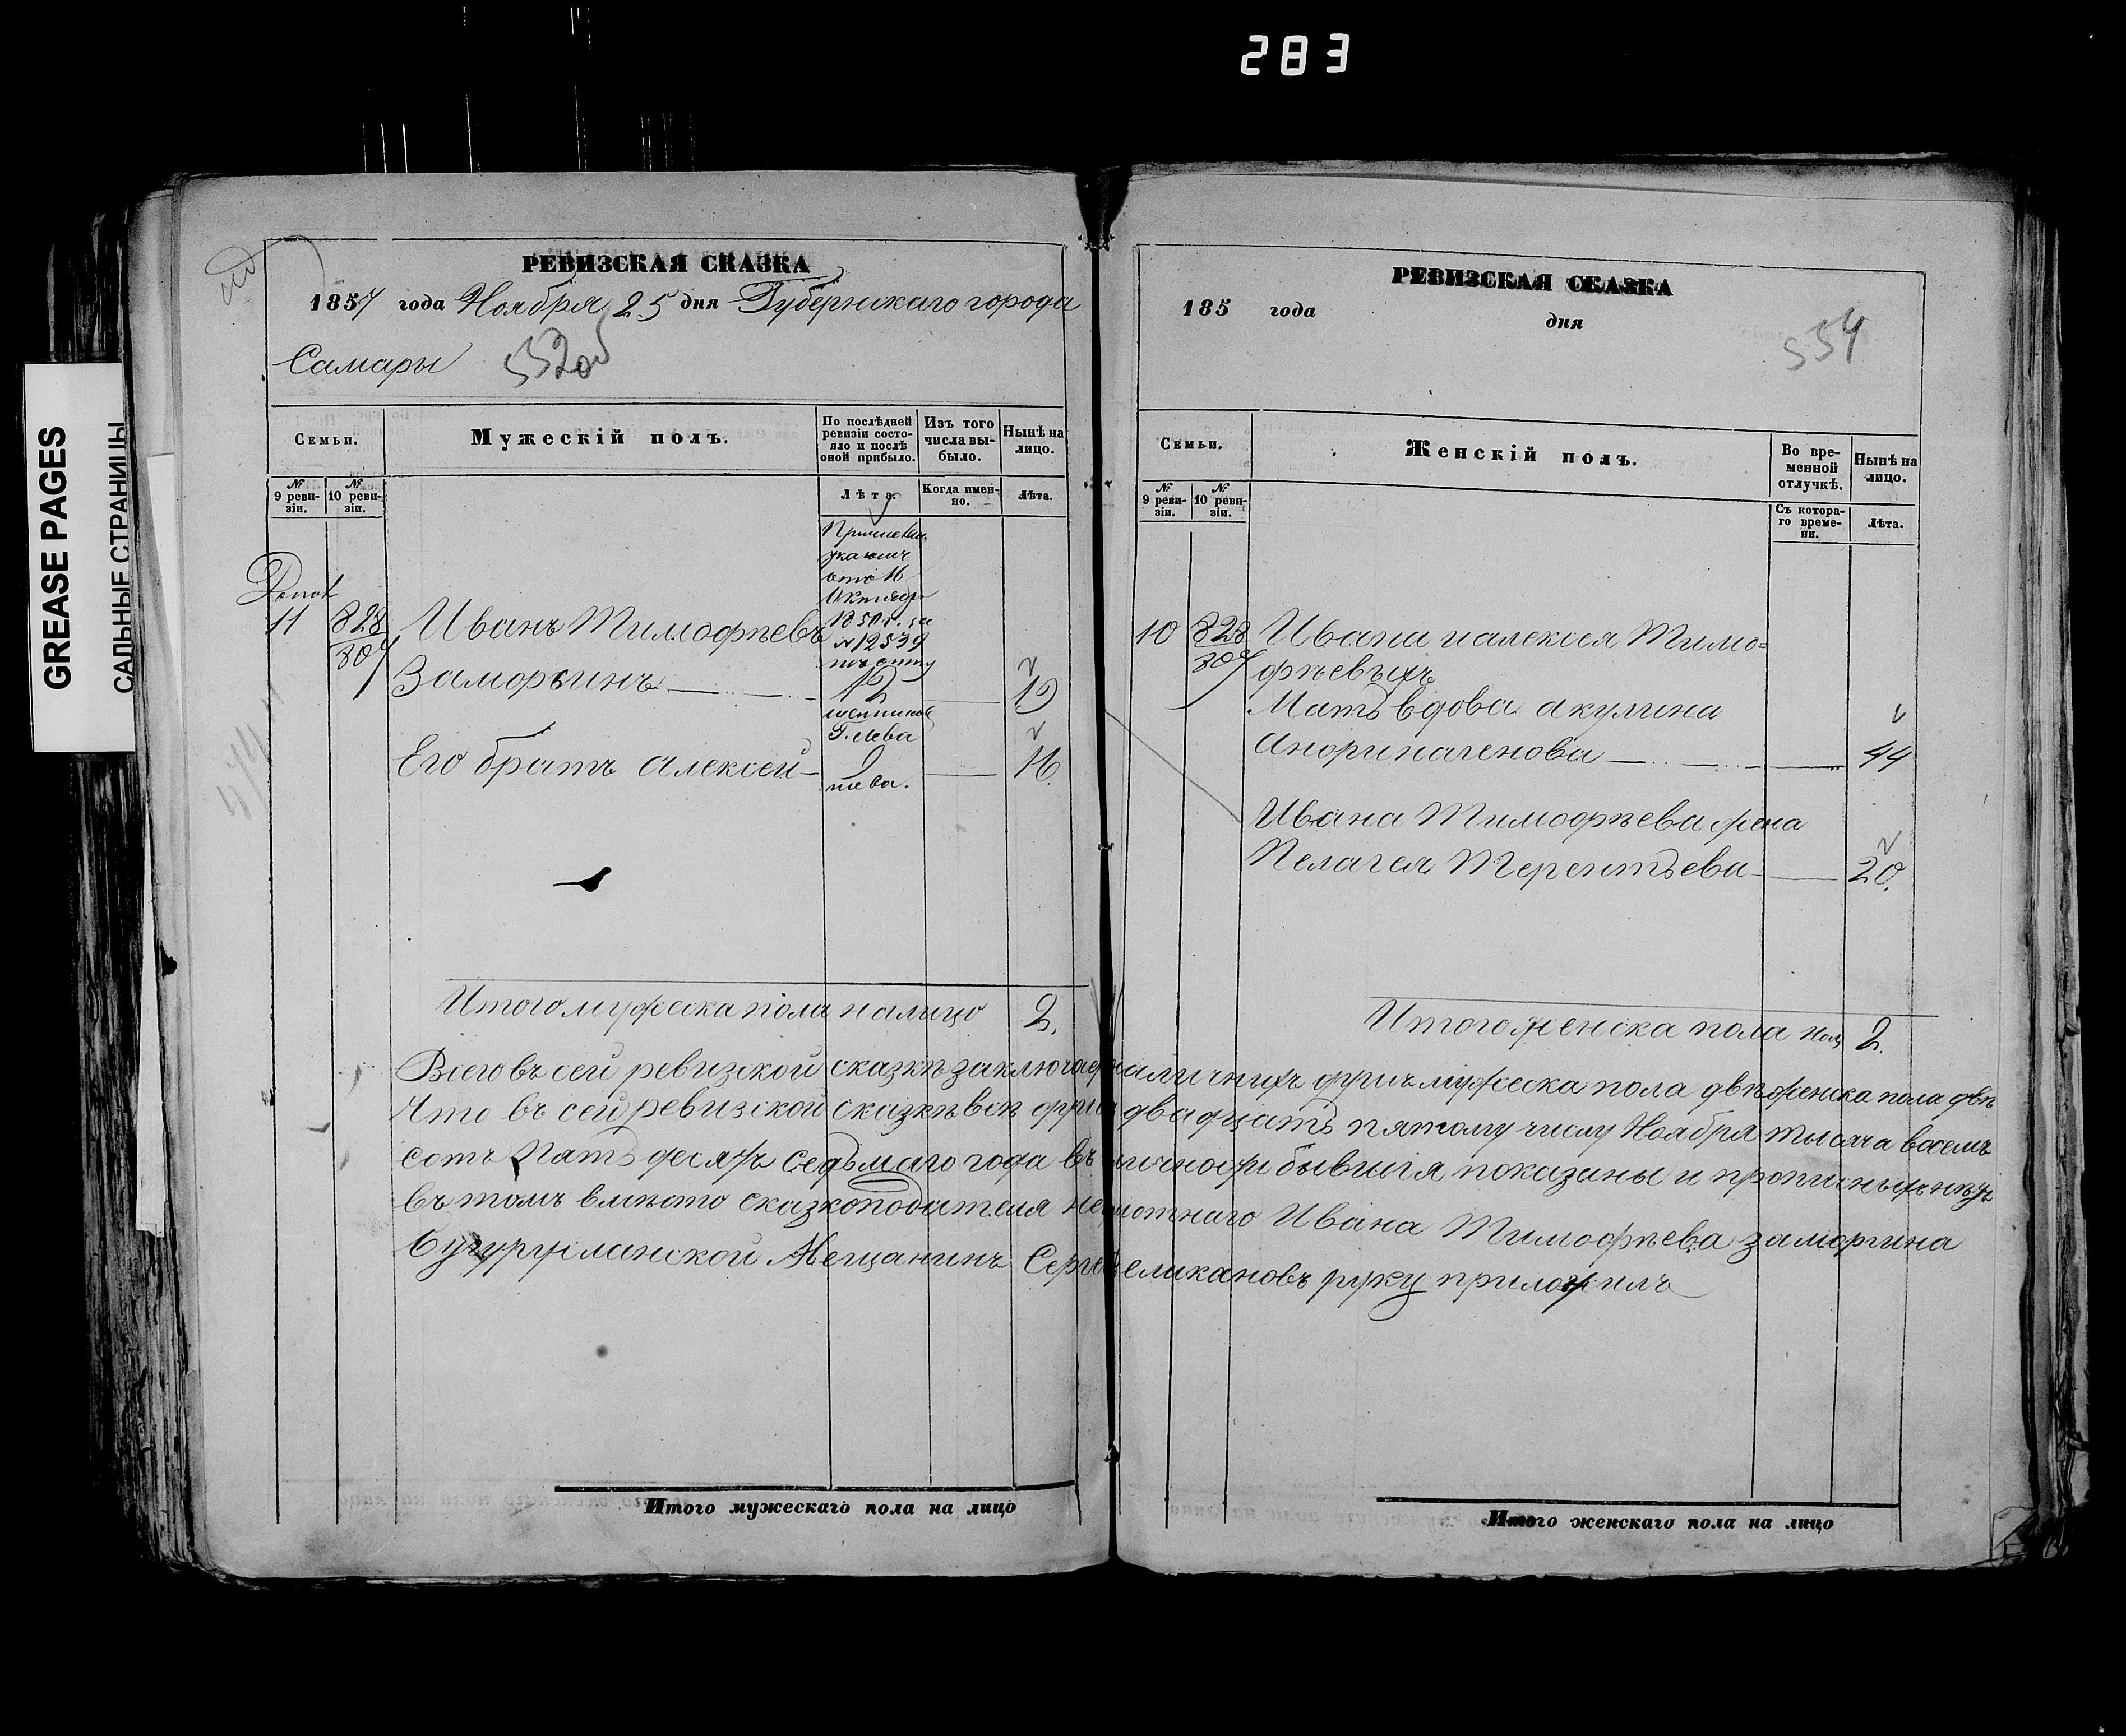 283
GREASE PAGES
САЛЬНЫЕ СТРАНИЦЫ
РЕВИЗСКАЯ СКАЗКА
1857 года Ноября 25 дня Губернскаго города
Самары
Семьи.
Мужескій полъ.
По послѣдней ревизіи состояло и послѣ оной прибыло.
Изъ того числа выбыло.
Нынѣ на лицо.
№ 9 ревизіи.
№ 10 ревизіи.
Лѣта.
Когда именно.
Лѣта.
11
828
307
указомъ
отъ 16
Октября
185 г. за
№ 12539
Иванъ Тимофѣевъ
Заморгинъ
12
19
Его братъ Алексей
9
16
Итого мужеска пола налицо 2.
РЕВИЗСКАЯ СКАЗКА
185 года дня
554
Семьи.
Женскій полъ.
Во временной отлучкѣ.
Нынѣ на лицо.
№ 9 ревизіи.
№ 10 ревизіи.
Съ котораго времени.
Лѣта.
10
828
307
Ивана и алексея Тимо=
фѣевыхъ
Мать вдова акулина
44
Ивана Тимофѣева жена
Пелагея Терентьева 20.
Итого женска пола 2.
Всего въ сей ревизкой сказкѣ заключае наличныхъ душъ мужеска пола двѣ женска пола двѣ
Что въ сей ревизской сказкѣ всѣ души двадцать пятому числу Ноября тысяча восемь
сотъ Пять десять седьмаго года въ бывшія показаны и прописныхъ нѣтъ
въ томъ вмѣсто сказкоподателя неграмотнаго Ивана Тимофѣева заморгина
Бугурусланской Мещанинъ Сергѣй Великановъ руку приложилъ
Итого мужескаго пола на лицо
Итого женскаго пола на лицо